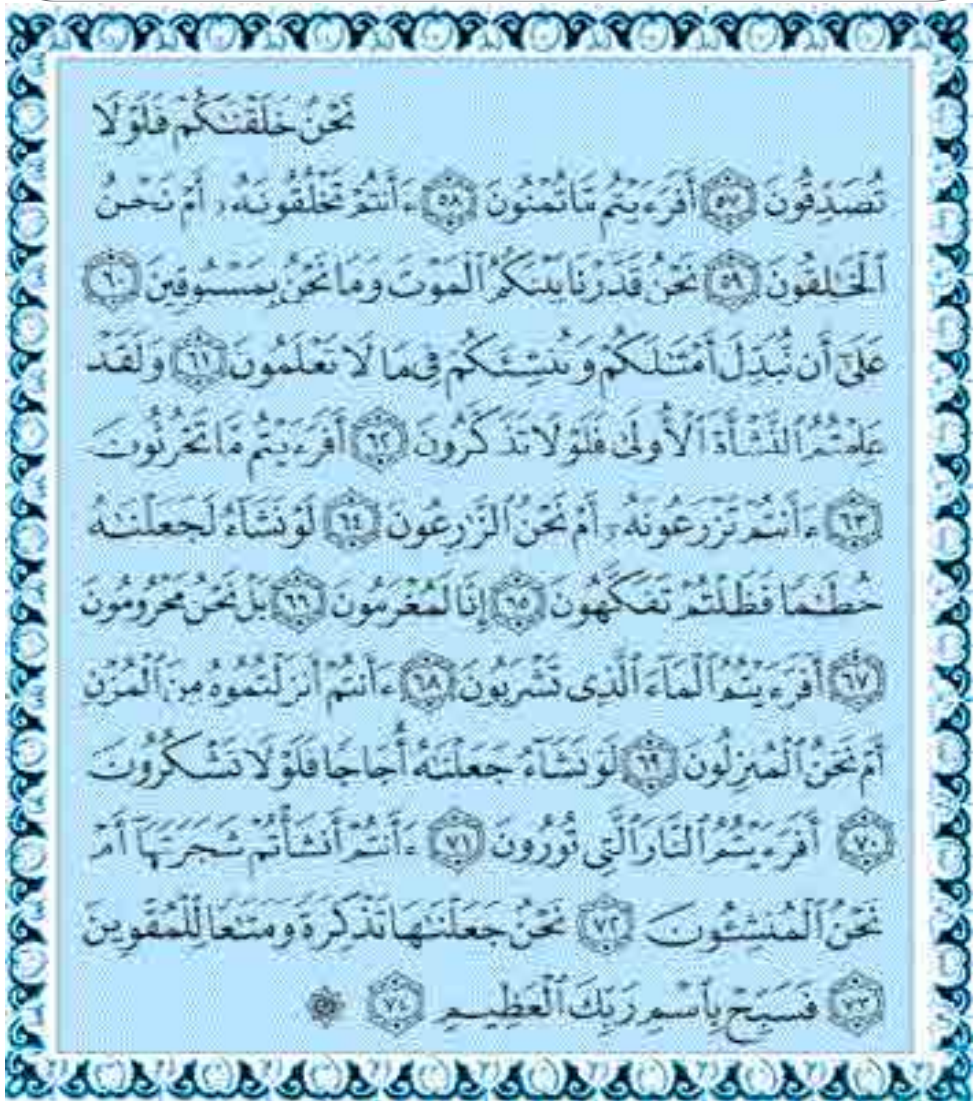 نَحْنُ خَلَقْنَـٰكُمْ فَلَوْلَا
تُصَدِّقُونَ ٥٧ أَفَرَءَيْتُم مَّا تُمْنُونَ ٥٨ ءَأَنتُمْ تَخْلُقُونَهُۥٓ أَمْ نَحْنُ
ٱلْخَـٰلِقُونَ ٥٩ نَحْنُ قَدَّرْنَا بَيْنَكُمُ ٱلْمَوْتَ وَمَا نَحْنُ بِمَسْبُوقِينَ ٦٠
عَلَىٰٓ أَن نُّبَدِّلَ أَمْثَـٰلَكُمْ وَنُنشِئَكُمْ فِى مَا لَا تَعْلَمُونَ ٦١ وَلَقَدْ
عَلِمْتُمُ ٱلنَّشْأَةَ ٱلْأُولَىٰ فَلَوْلَا تَذَكَّرُونَ ٦٢ أَفَرَءَيْتُم مَّا تَحْرُثُونَ
٦٣ ءَأَنتُمْ تَزْرَعُونَهُۥٓ أَمْ نَحْنُ ٱلزَّٰرِعُونَ ٦٤ لَوْ نَشَآءُ لَجَعَلْنَـٰهُ
حُطَـٰمًا فَظَلْتُمْ تَفَكَّهُونَ ٦٥ إِنَّا لَمُغْرَمُونَ ٦٦ بَلْ نَحْنُ مَحْرُومُونَ
٦٧ أَفَرَءَيْتُمُ ٱلْمَآءَ ٱلَّذِى تَشْرَبُونَ ٦٨ ءَأَنتُمْ أَنزَلْتُمُوهُ مِنَ ٱلْمُزْنِ
أَمْ نَحْنُ ٱلْمُنزِلُونَ ٦٩ لَوْ نَشَآءُ جَعَلْنَـٰهُ أُجَاجًا فَلَوْلَا تَشْكُرُونَ
٧٠ أَفَرَءَيْتُمُ ٱلنَّارَ ٱلَّتِى تُورُونَ ٧١ ءَأَنتُمْ أَنشَأْتُمْ شَجَرَتَهَآ أَمْ
نَحْنُ ٱلْمُنشِـُٔونَ ٧٢ نَحْنُ جَعَلْنَـٰهَا تَذْكِرَةً وَمَتَـٰعًا لِّلْمُقْوِينَ
٧٣ فَسَبِّحْ بِٱسْمِ رَبِّكَ ٱلْعَظِيمِ ٧٤ ۞